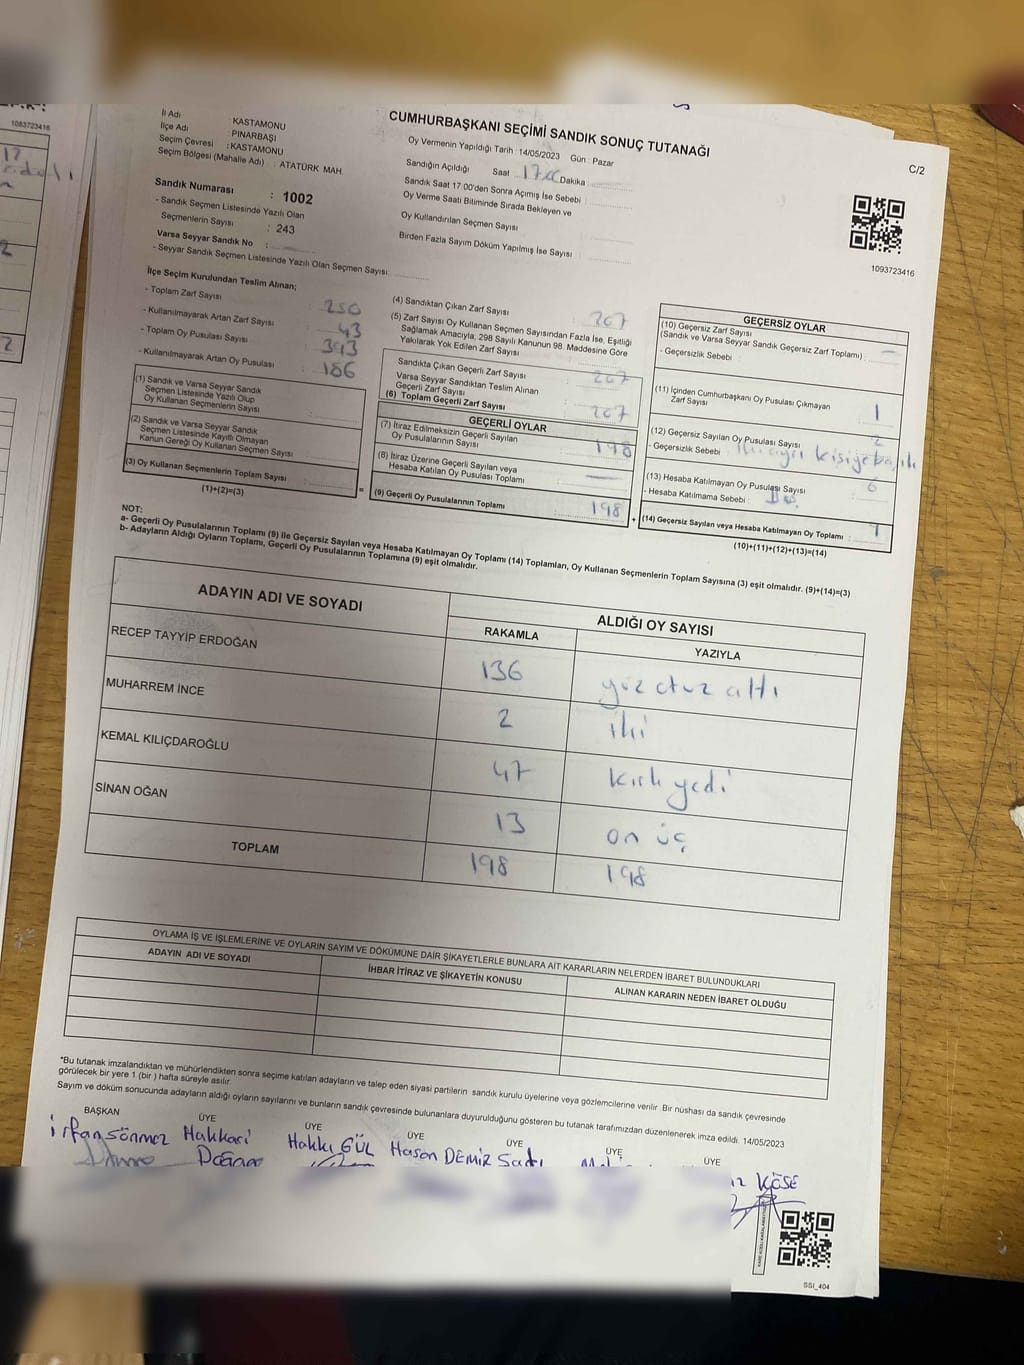 1083723416
CUMHURBAŞKANI SEÇİMİ SANDIK SONUÇ TUTANAĞI
C/2
İl Adı : KASTAMONU
İlçe Adı : PINARBAŞI
Seçim Çevresi : KASTAMONU
Seçim Bölgesi (Mahalle Adı) : ATATÜRK MAH.
Oy Vermenin Yapıldığı Tarih : 14/05/2023 Gün : Pazar
Sandığın Açıldığı Saat Dakika :
Sandık Saat 17:00'den Sonra Açımış İse Sebebi :
Oy Verme Saati Bitiminde Sırada Bekleyen ve
Oy Kullandırılan Seçmen Sayısı
Birden Fazla Sayım Döküm Yapılmış İse Sayısı :
1093723416
Sandık Numarası : 1002
- Sandık Seçmen Listesinde Yazılı Olan
Seçmenlerin Sayısı : 243
Varsa Seyyar Sandık No :
- Seyyar Sandık Seçmen Listesinde Yazılı Olan Seçmen Sayısı:
İlçe Seçim Kurulundan Teslim Alınan;
- Toplam Zarf Sayısı : 250
- Kullanılmayarak Artan Zarf Sayısı : 43
- Toplam Oy Pusulası Sayısı : 393
- Kullanılmayarak Artan Oy Pusulası : 186
(1) Sandık ve Varsa Seyyar Sandık
Seçmen Listesinde Yazılı Olup
Oy Kullanan Seçmenlerin Sayısı
(2) Sandık ve Varsa Seyyar Sandık
Seçmen Listesinde Kayıtlı Olmayan
Kanun Gereği Oy Kullanan Seçmen Sayısı
(3) Oy Kullanan Seçmenlerin Toplam Sayısı :
(1)+(2)=(3)
(4) Sandıktan Çıkan Zarf Sayısı : 207
(5) Zarf Sayısı Oy Kullanan Seçmen Sayısından Fazla İse, Eşitliği
Sağlamak Amacıyla, 298 Sayılı Kanunun 98. Maddesine Göre
Yakılarak Yok Edilen Zarf Sayısı
Sandıkta Çıkan Geçerli Zarf Sayısı : 207
Varsa Seyyar Sandıktan Teslim Alınan
Geçerli Zarf Sayısı
(6) Toplam Geçerli Zarf Sayısı 207
GEÇERLİ OYLAR
(7) İtiraz Edilmeksizin Geçerli Sayılan
Oy Pusulalarının Sayısı : 198
(8) İtiraz Üzerine Geçerli Sayılan veya
Hesaba Katılan Oy Pusulası Toplamı : —
(9) Geçerli Oy Pusulalarının Toplamı 198
GEÇERSİZ OYLAR
(10) Geçersiz Zarf Sayısı
(Sandık ve Varsa Seyyar Sandık Geçersiz Zarf Toplamı) : —
- Geçersizlik Sebebi :
(11) İçinden Cumhurbaşkanı Oy Pusulası Çıkmayan
Zarf Sayısı : 1
(12) Geçersiz Sayılan Oy Pusulası Sayısı 2
- Geçersizlik Sebebi : kişiye
(13) Hesaba Katılmayan Oy Pusulası Sayısı 6
- Hesaba Katılmama Sebebi :
(14) Geçersiz Sayılan veya Hesaba Katılmayan Oy Toplamı : 9
(10)+(11)+(12)+(13)=(14)
NOT:
a- Geçerli Oy Pusulalarının Toplamı (9) ile Geçersiz Sayılan veya Hesaba Katılmayan Oy Toplamı (14) Toplamları, Oy Kullanan Seçmenlerin Toplam Sayısına (3) eşit olmalıdır. (9)+(14)=(3)
b- Adayların Aldığı Oyların Toplamı, Geçerli Oy Pusulalarının Toplamına (9) eşit olmalıdır.
ADAYIN ADI VE SOYADI
ALDIĞI OY SAYISI
RAKAMLA YAZIYLA
RECEP TAYYİP ERDOĞAN 136 yüz otuz altı
MUHARREM İNCE 2 iki
KEMAL KILIÇDAROĞLU 47 kırk yedi
SİNAN OĞAN 13 on üç
TOPLAM 198 198
OYLAMA İŞ VE İŞLEMLERİNE VE OYLARIN SAYIM VE DÖKÜMÜNE DAİR ŞİKAYETLERLE BUNLARA AİT KARARLARIN NELERDEN İBARET BULUNDUKLARI
ADAYIN ADI VE SOYADI
İHBAR İTİRAZ VE ŞİKAYETİN KONUSU
ALINAN KARARIN NEDEN İBARET OLDUĞU
*Bu tutanak imzalandıktan ve mühürlendikten sonra seçime katılan adayların ve talep eden siyasi partilerin sandık kurulu üyelerine veya gözlemcilerine verilir. Bir nüshası da sandık çevresinde
görülecek bir yere 1 (bir ) hafta süreyle asılır.
Sayım ve döküm sonucunda adayların aldığı oyların sayılarını ve bunların sandık çevresinde bulunanlara duyurulduğunu gösteren bu tutanak tarafımızdan düzenlenerek imza edildi. 14/05/2023
BAŞKAN ÜYE ÜYE ÜYE ÜYE ÜYE ÜYE
irfan sönmez Hakkari Hakkı GÜL Hasan DEMİR
Doğan
KÖSE
SSI_404